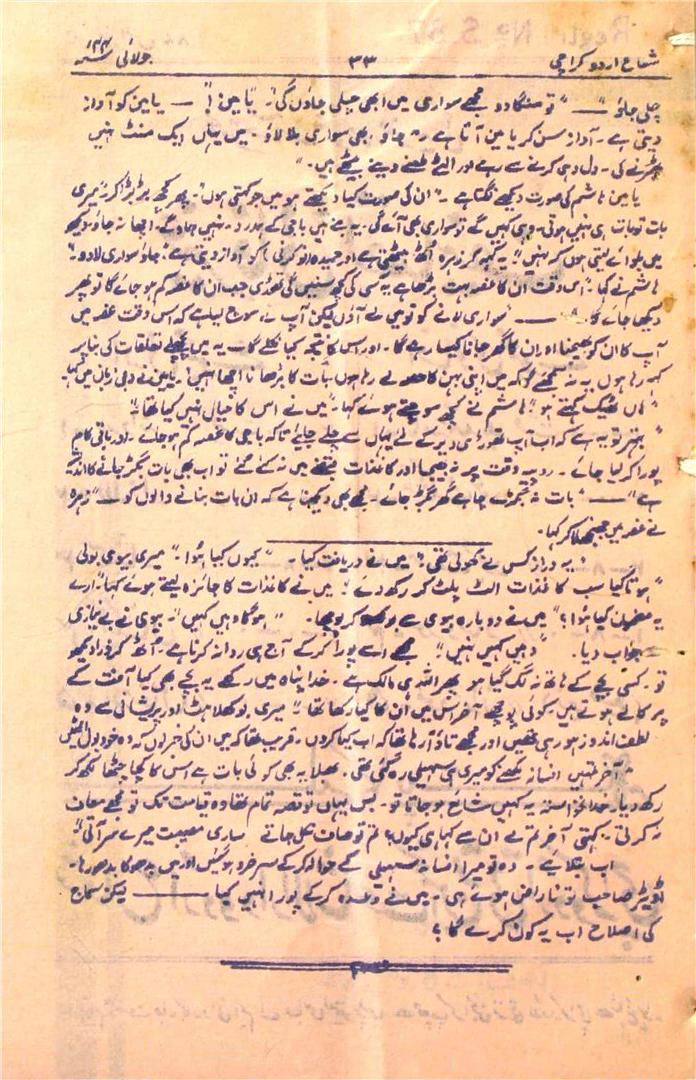 شعاع اردو کراچی ۳۳ جولائی ۴۴ء
چلی جاؤ" —— "تو منگا دو مجھے سواری میں ابھی چلی جاؤں گی۔" "یامین!" — یامین کو آواز
دیتی ہے۔ آواز سن کر یامین آتا ہے "جاؤ، ابھی سواری بلا لاؤ۔ میں یہاں ایک منٹ نہیں
ٹھہرنے کی۔ دل دہی کرنے سے رہے اور الٹے طعنے دینے بیٹھے ہیں۔"
یامین ہاشم کی صورت دیکھنے لگتا ہے۔ "ان کی صورت کیا دیکھتے ہو میں جو کہتی ہوں"۔ پھر کچھ بڑبڑا کر "میری
بات تو بات ہی نہیں ہوتی۔ وہی کہیں گے تو سواری بھی آئے گی۔ یہ بنے ہیں باجی کے ہمدرد۔ نہیں جاؤ گے۔ اچھا نہ جاؤ۔ دیکھو
میں بلوائے لیتی ہوں کہ نہیں" یہ کہہ کر زہرہ اٹھ بیٹھتی ہے اور حمیدہ کو آواز دیتی ہے "جاؤ سواری لا دو۔"
ہاشم نے کہا "اس وقت ان کا غصہ بہت بڑھا ہے یہ کسی کی کچھ سنیں گی تھوڑی جب ان کا غصہ کم ہو جائے گا تو پھر
دیکھا جائے گا۔" —— "سواری لانے کو تو میں لے آؤں لیکن آپ نے سوچ لیا ہے کہ اس وقت غصہ میں
آپ کا ان کو بھیجنا اور ان کا گھر جانا کیسا رہے گا۔ اور اس کا نتیجہ کیا نکلے گا۔ یہ میں پچھلے تعلقات کی بنا پر
کہہ رہا ہوں یہ نہ سمجھئے گا کہ میں اپنی بہن کا لے رہا ہوں بات کا بڑھانا اچھا نہیں" یامین نے دبی زبان میں کہا
"ہاں ٹھیک کہتے ہو" ہاشم نے کچھ سوچتے ہوئے کہا۔ "میں نے اس کا خیال نہیں کیا تھا"
"بہتر تو یہ ہے کہ اب آپ تھوڑی دیر کے لئے یہاں سے چلے جائیے تاکہ باجی کا غصہ کم ہو جائے۔ اور باقی کام
پورا کر لیا جائے۔ روپیہ وقت پر نہ بھیجا اور کاغذات قبضے میں نہ کئے گئے تو اب بھی بات بگڑ جانے کا اندیشہ
ہے" —— "بات نہ بگڑے چاہے گھر بگڑ جائے۔ مجھے بھی دیکھنا ہے کہ ان بات بنانے والوں کو —" زہرہ
نے غصہ میں جھنجھلا کر کہا۔
"یہ دراز کس نے کھولی تھی؟" میں نے دریافت کیا۔ "کیوں کیا ہوا۔" میری بیوی بولی
"ہوتا کیا سب کاغذات الٹ پلٹ کر رکھ دئے" میں نے کاغذات کا جائزہ لیتے ہوئے کہا "ارے
یہ مضمون کیا ہوا؟" میں نے دوبارہ بیوی سے پوچھا۔ "ہو گا وہیں کہیں"۔ بیوی نے بے نیازی
سے جواب دیا۔ "وہیں کہیں نہیں" مجھے اسے پورا کر کے آج ہی روانہ کرنا ہے۔ "اٹھ کر ذرا دیکھو
تو۔ کسی بچے کے ہاتھ نہ لگ گیا ہو پھر اللہ ہی مالک ہے۔ خدا پناہ میں رکھے یہ بچے بھی کیا آفت کے
پرکالے ہوتے ہیں۔ کوئی پوچھے آخر اس میں ان کا کیا رکھا تھا" میری بوکھلاہٹ اور پریشانی سے وہ
لطف اندوز ہو رہی تھیں اور مجھے تاؤ آ رہا تھا کہ اب کیا کروں۔ قریب تھا کہ میں ان کی خبر لوں کہ وہ خود بول اٹھیں
"آخر تمہیں افسانہ لکھنے کو میری ہی سہیلی رہ گئی تھی۔ بھلا یہ بھی کوئی بات ہے اس کا کچا چٹھا لکھ کر
رکھ دیا۔ خدانخواستہ یہ کہیں شائع ہو جاتا تو۔ بس یہاں تو قصہ تمام تھا وہ قیامت تک تو مجھے معاف
نہ کرتی۔ کہتی آخر تم نے ان سے کہا ہی کیوں؟ تم تو صاف نکل جاتے ساری مصیبت میرے سر آتی"
اب بتلایئے۔ وہ تو میرا افسانہ سہیلی کے حوالہ کر کے سرخرو ہو گئیں اور میں بدھو کا بدھو رہا۔
اڈیٹر صاحب تو ناراض ہوئے ہی۔ میں نے وعدہ کر کے پورا نہیں کیا —— لیکن سماج
کی اصلاح اب یہ کون کرے گا؟